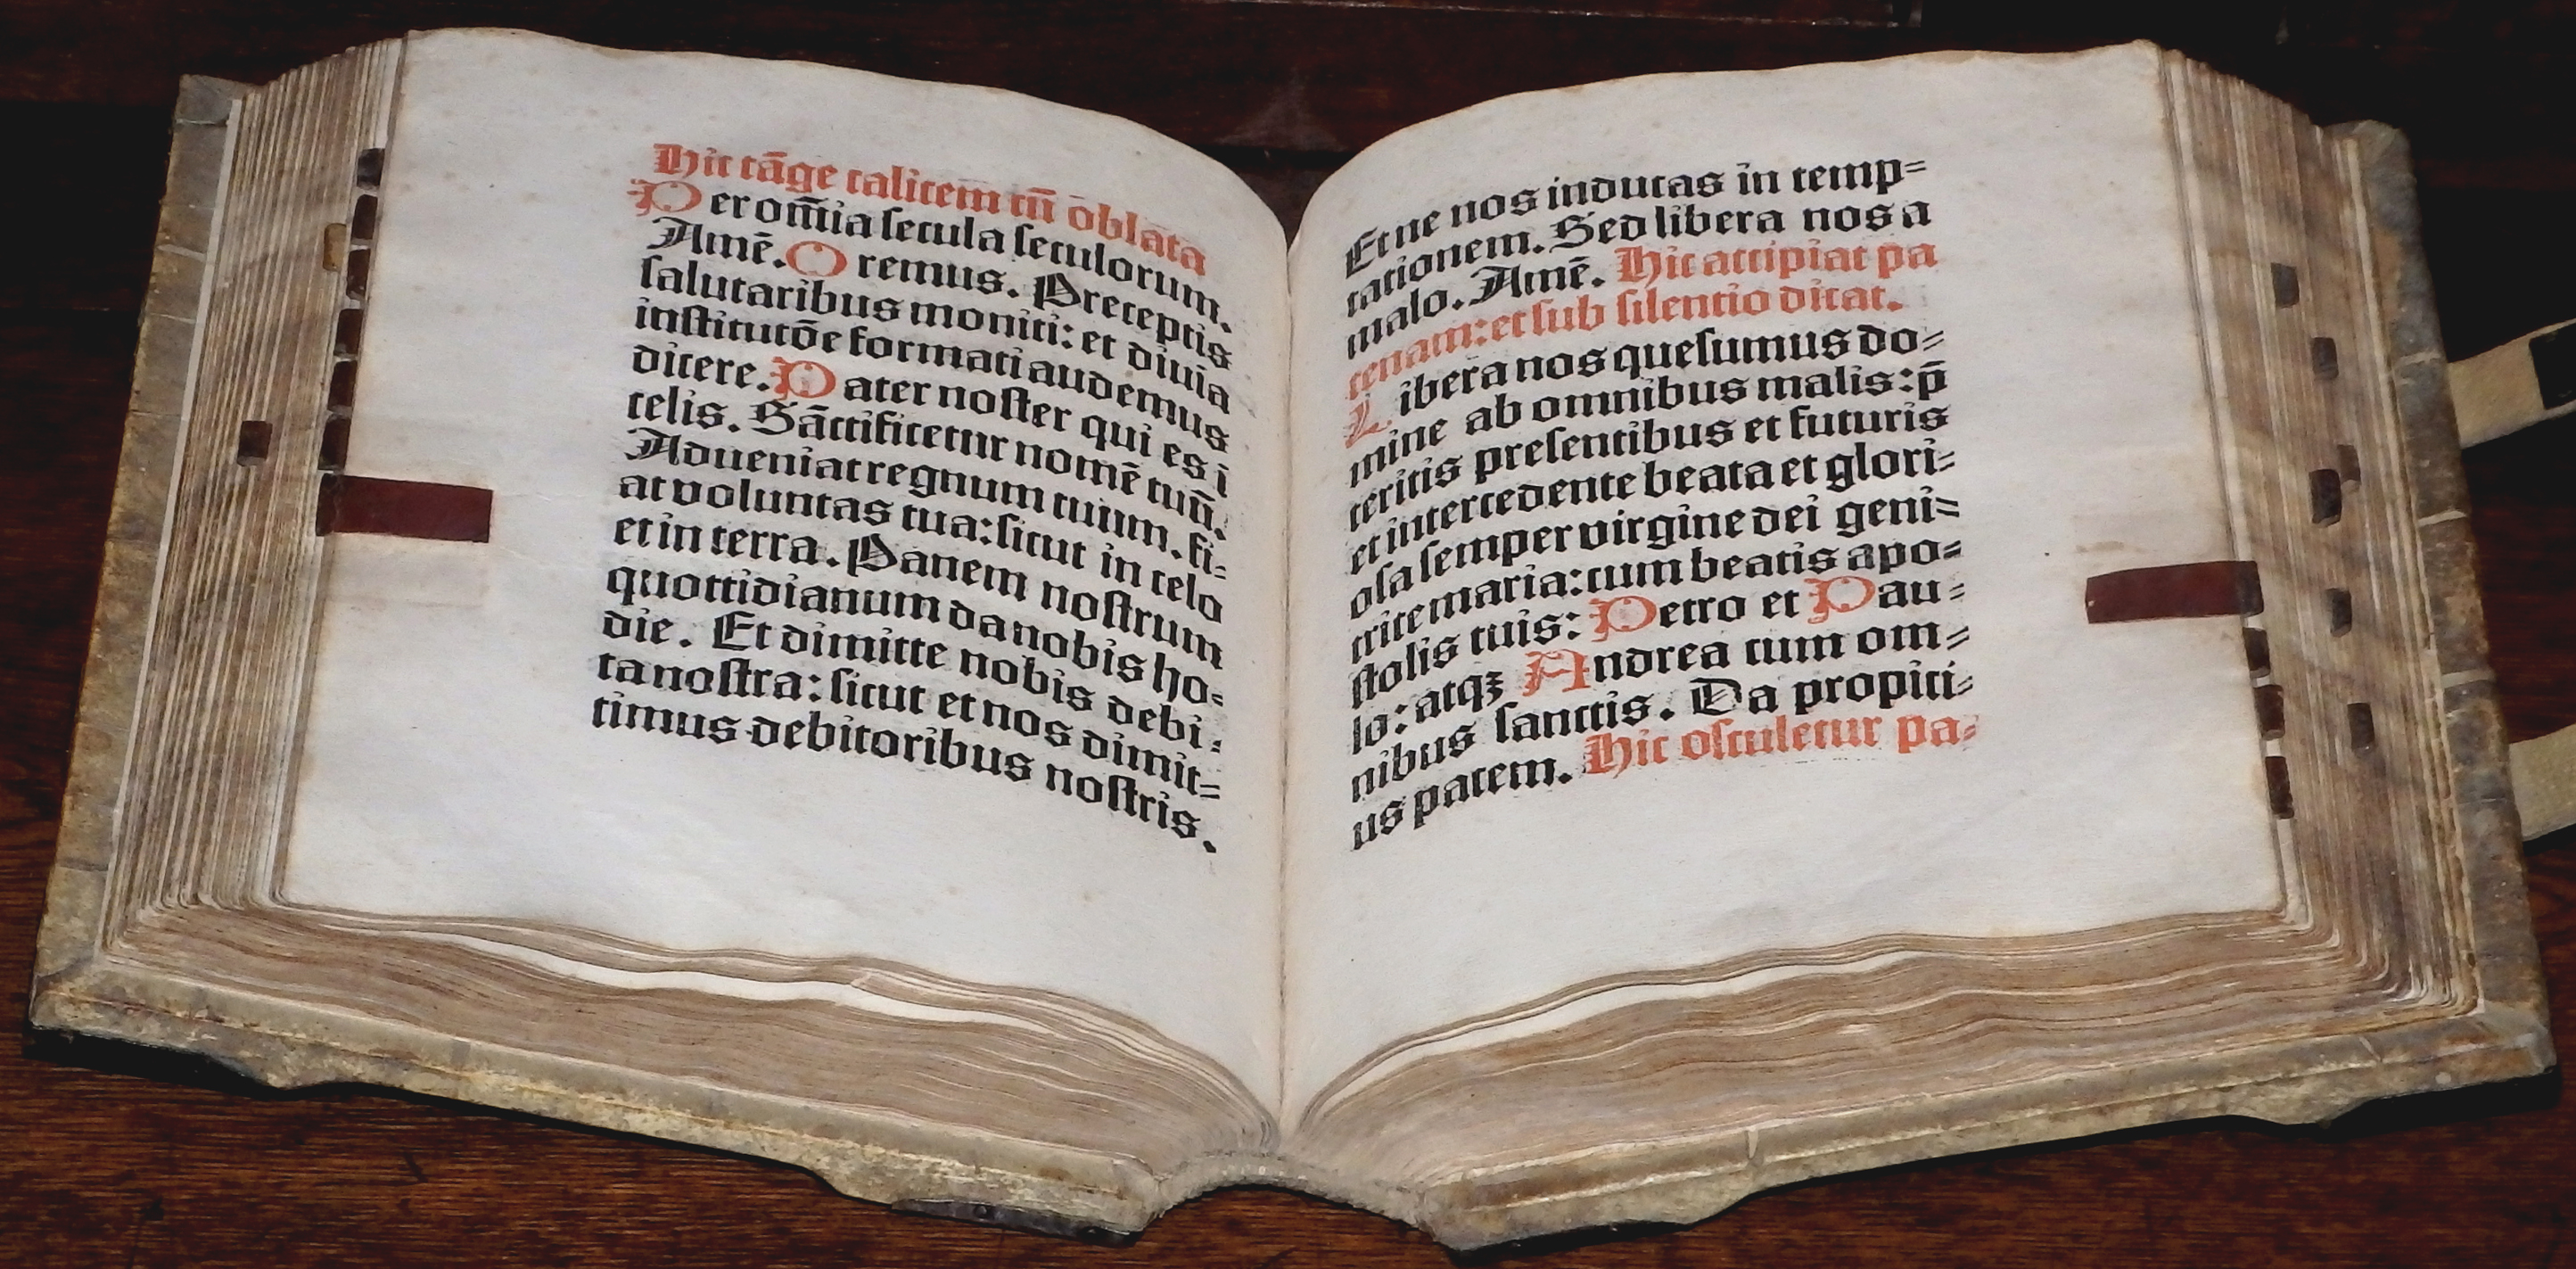 Hic tāge calicem cū oblata
Per om̄ia ſecula ſeculorum.
Amē. Oremus. Preceptis
ſalutaribus moniti: et diuia
inſtitutōe formati audemus
dicere. Pater noſter qui es ī
celis. Sāctificetur nomē tuū.
Adueniat regnum tuum. fi-
at voluntas tua: ſicut in celo
et in terra. Panem noſtrum
quottidianum da nobis ho-
die. Et dimitte nobis debi-
ta noſtra: ſicut et nos dimit=
timus debitoribus noſtris.
Et ne nos inducas in temp=
tationem. Sed libera nos a
malo. Amē. Hic accipiat pa
tenam: et ſub ſilentio dicat.
Libera nos queſumus do-
mine ab omnibus malis: p̄
teritis preſentibus et futuris
et intercedente beata et glori-
oſa ſemper virgine dei geni=
trice maria: cum beatis apo=
ſtolis tuis: Petro et Pau-
lo: atqꝫ Andrea cum om=
nibus ſanctis. Da propici-
us pacem. Hic oſculetur pa-